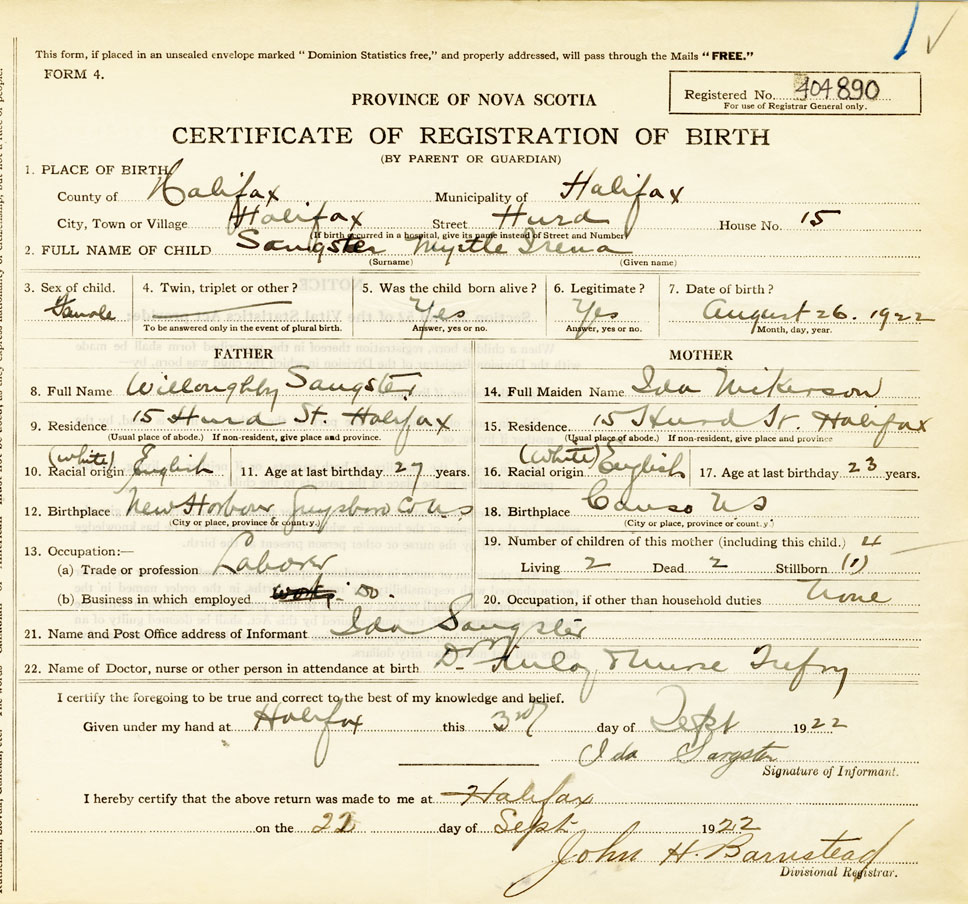 This form, if placed in an unsealed envelope marked "Dominion Statistics free," and properly addressed, will pass through the Mails "FREE."
FORM 4.
Registered No. 404890
For use of Registrar General only.
PROVINCE OF NOVA SCOTIA
CERTIFICATE OF REGISTRATION OF BIRTH
(BY PARENT OR GUARDIAN)
1. PLACE OF BIRTH
County of Halifax Municipality of Halifax
City, Town or Village Halifax Street Hurd House No. 15
(If birth occurred in a hospital, give its name instead of Street and Number)
2. FULL NAME OF CHILD Sangster Myrtle Irena
(Surname) (Given name)
3. Sex of child. 4. Twin, triplet or other? 5. Was the child born alive? 6. Legitimate? 7. Date of birth?
Female Yes Yes August 26. 1922
To be answered only in the event of plural birth. Answer, yes or no. Answer, yes or no. Month, day, year.
FATHER MOTHER
8. Full Name Willoughby Sangster 14. Full Maiden Name Ida Nikerson
9. Residence 15 Hurd St. Halifax 15. Residence 15 Hurd St. Halifax
(Usual place of abode.) If non-resident, give place and province. (Usual place of abode.) If non-resident, give place and province
10. Racial origin (white) English 11. Age at last birthday 27 years. 16. Racial origin (White) English 17. Age at last birthday 23 years.
12. Birthplace New Harbour Guysboro Co N.S 18. Birthplace Canso NS
(City or place, province or country.) (City or place, province or country)
13. Occupation:— 19. Number of children of this mother (including this child.) 4
(a) Trade or profession Laborer Living 2 Dead 2 Stillborn (1)
(b) Business in which employed Do. 20. Occupation, if other than household duties None
21. Name and Post Office address of Informant Ida Sangster
22. Name of Doctor, nurse or other person in attendance at birth Dr. & Nurse Trefry
I certify the foregoing to be true and correct to the best of my knowledge and belief.
Given under my hand at Halifax this 3rd day of Sept 1922
Ida Sangster
Signature of Informant.
I hereby certify that the above return was made to me at Halifax
on the 22 day of Sept 1922
John H. Barnstead
Divisional Registrar.